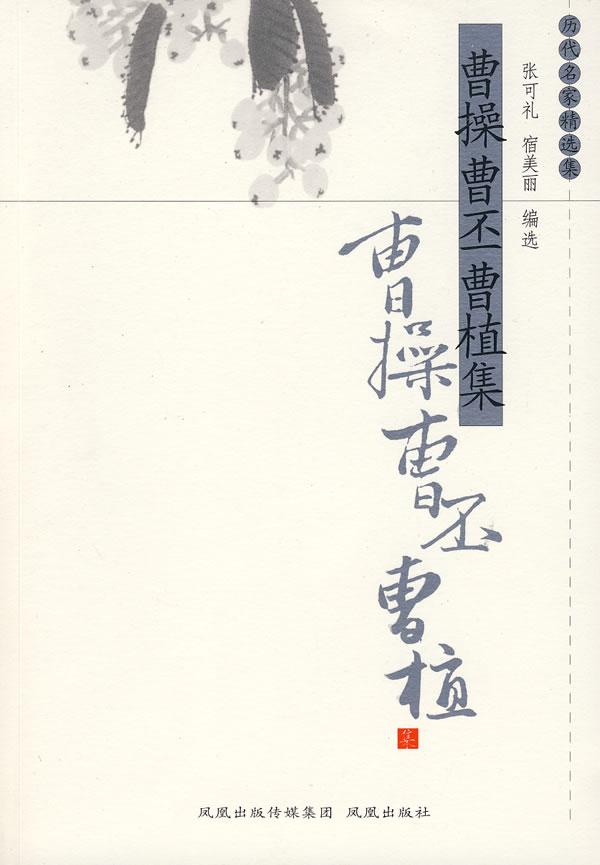 历代名家精选集
张可礼 宿美丽 编选
曹操 曹丕 曹植集
曹操曹丕曹植
集
凤凰出版传媒集团 凤凰出版社